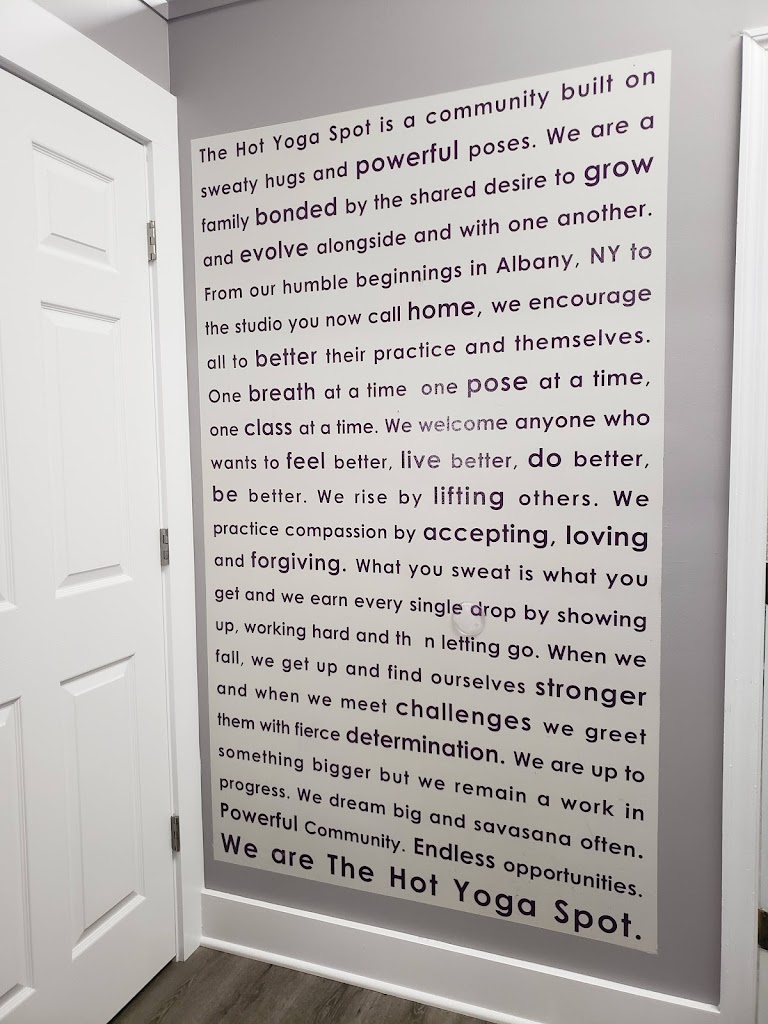 The Hot Yoga Spot is a community built on
sweaty hugs and powerful poses. We are a
family bonded by the shared desire to grow
and evolve alongside and with one another.
From our humble beginnings in Albany, NY to
the studio you now call home, we encourage
all to better their practice and themselves.
One breath at a time one pose at a time,
one class at a time. We welcome anyone who
wants to feel better, live better, do better,
be better. We rise by lifting others. We
practice compassion by accepting, loving
and forgiving. What you sweat is what you
get and we earn every single drop by showing
up, working hard and th n letting go. When we
fall, we get up and find ourselves stronger
and when we meet challenges we greet
them with fierce determination. We are up to
something bigger but we remain a work in
progress. We dream big and savasana often.
Powerful Community. Endless opportunities.
We are The Hot Yoga Spot.